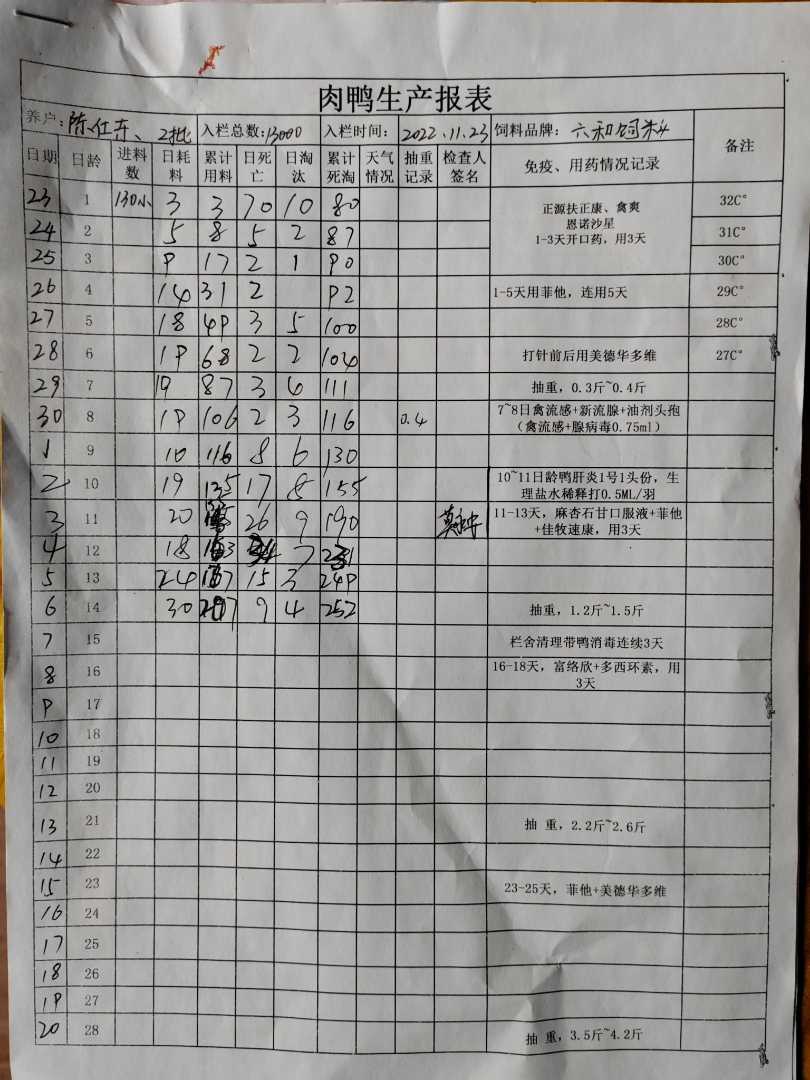 肉鸭生产报表
养户: 陈仁东、2批 入栏总数:13000 入栏时间: 2022.11.23 饲料品牌: 六和饲料 备注
日期 日龄 进料数 日耗料 累计用料 日死亡 日淘汰 累计死淘 天气情况 抽重记录 检查人签名 免疫、用药情况记录
23 1 130小 3 3 70 10 80 正源扶正康、禽爽 32C°
恩诺沙星
24 2 5 8 5 2 87 1-3天开口药，用3天 31C°
25 3 9 17 2 1 90 30C°
26 4 14 31 2 92 1-5天用菲他，连用5天 29C°
27 5 18 49 3 5 100 28C°
28 6 19 68 2 2 104 打针前后用美德华多维 27C°
29 7 19 87 3 4 111 抽重，0.3斤~0.4斤
30 8 19 106 2 3 116 0.4 7~8日禽流感+新流腺+油剂头孢
（禽流感+腺病毒0.75ml）
1 9 10 116 8 6 130
2 10 19 135 17 8 155 10~11日龄鸭肝炎1号1头份，生
理盐水稀释打0.5ML/羽
3 11 20 26 9 190 11-13天，麻杏石甘口服液+菲他
+佳牧速康，用3天
4 12 18 7 231
5 13 24 15 3 249
6 14 30 207 9 4 252 抽重，1.2斤~1.5斤
7 15 栏舍清理带鸭消毒连续3天
8 16 16-18天，富络欣+多西环素，用
3天
9 17
10 18
11 19
12 20
13 21 抽 重，2.2斤~2.6斤
14 22
15 23 23-25天，菲他+美德华多维
16 24
17 25
18 26
19 27
20 28 抽 重，3.5斤~4.2斤